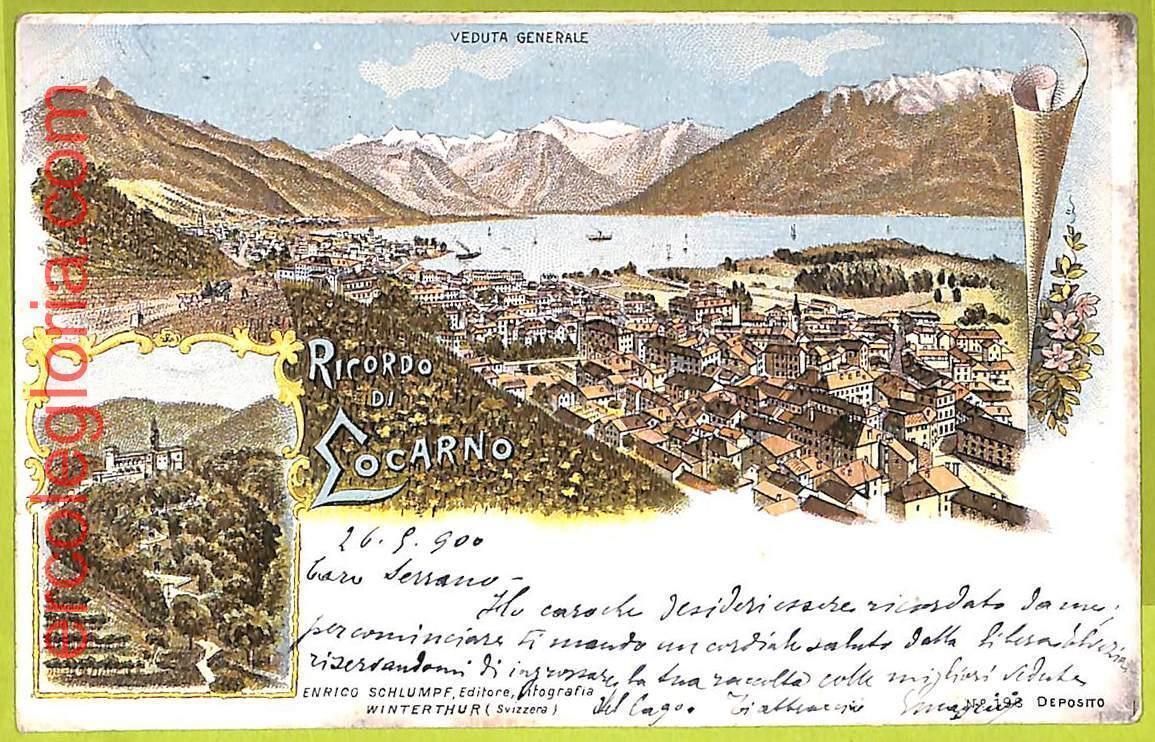 VEDUTA GENERALE
ercolegloria.com
RICORDO
DI
LOCARNO
26. 5. 900
Caro Serrano -
Ho caro che desideri essere ricordato da me;
per cominciare ti mando un cordiale saluto dalla libera
riservandomi di ingrossare la tua raccolta colle migliori vedute
del Lago. Ti abbraccio
ENRICO SCHLUMPF, Editore, Litografia
WINTERTHUR (Svizzera)
No. 193 DEPOSITO